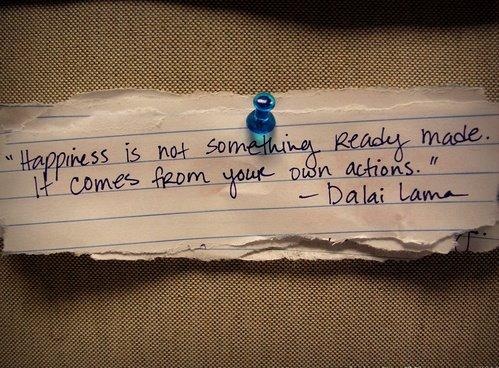 "Happiness is not something Ready made.
It comes from your own actions."
- Dalai Lama